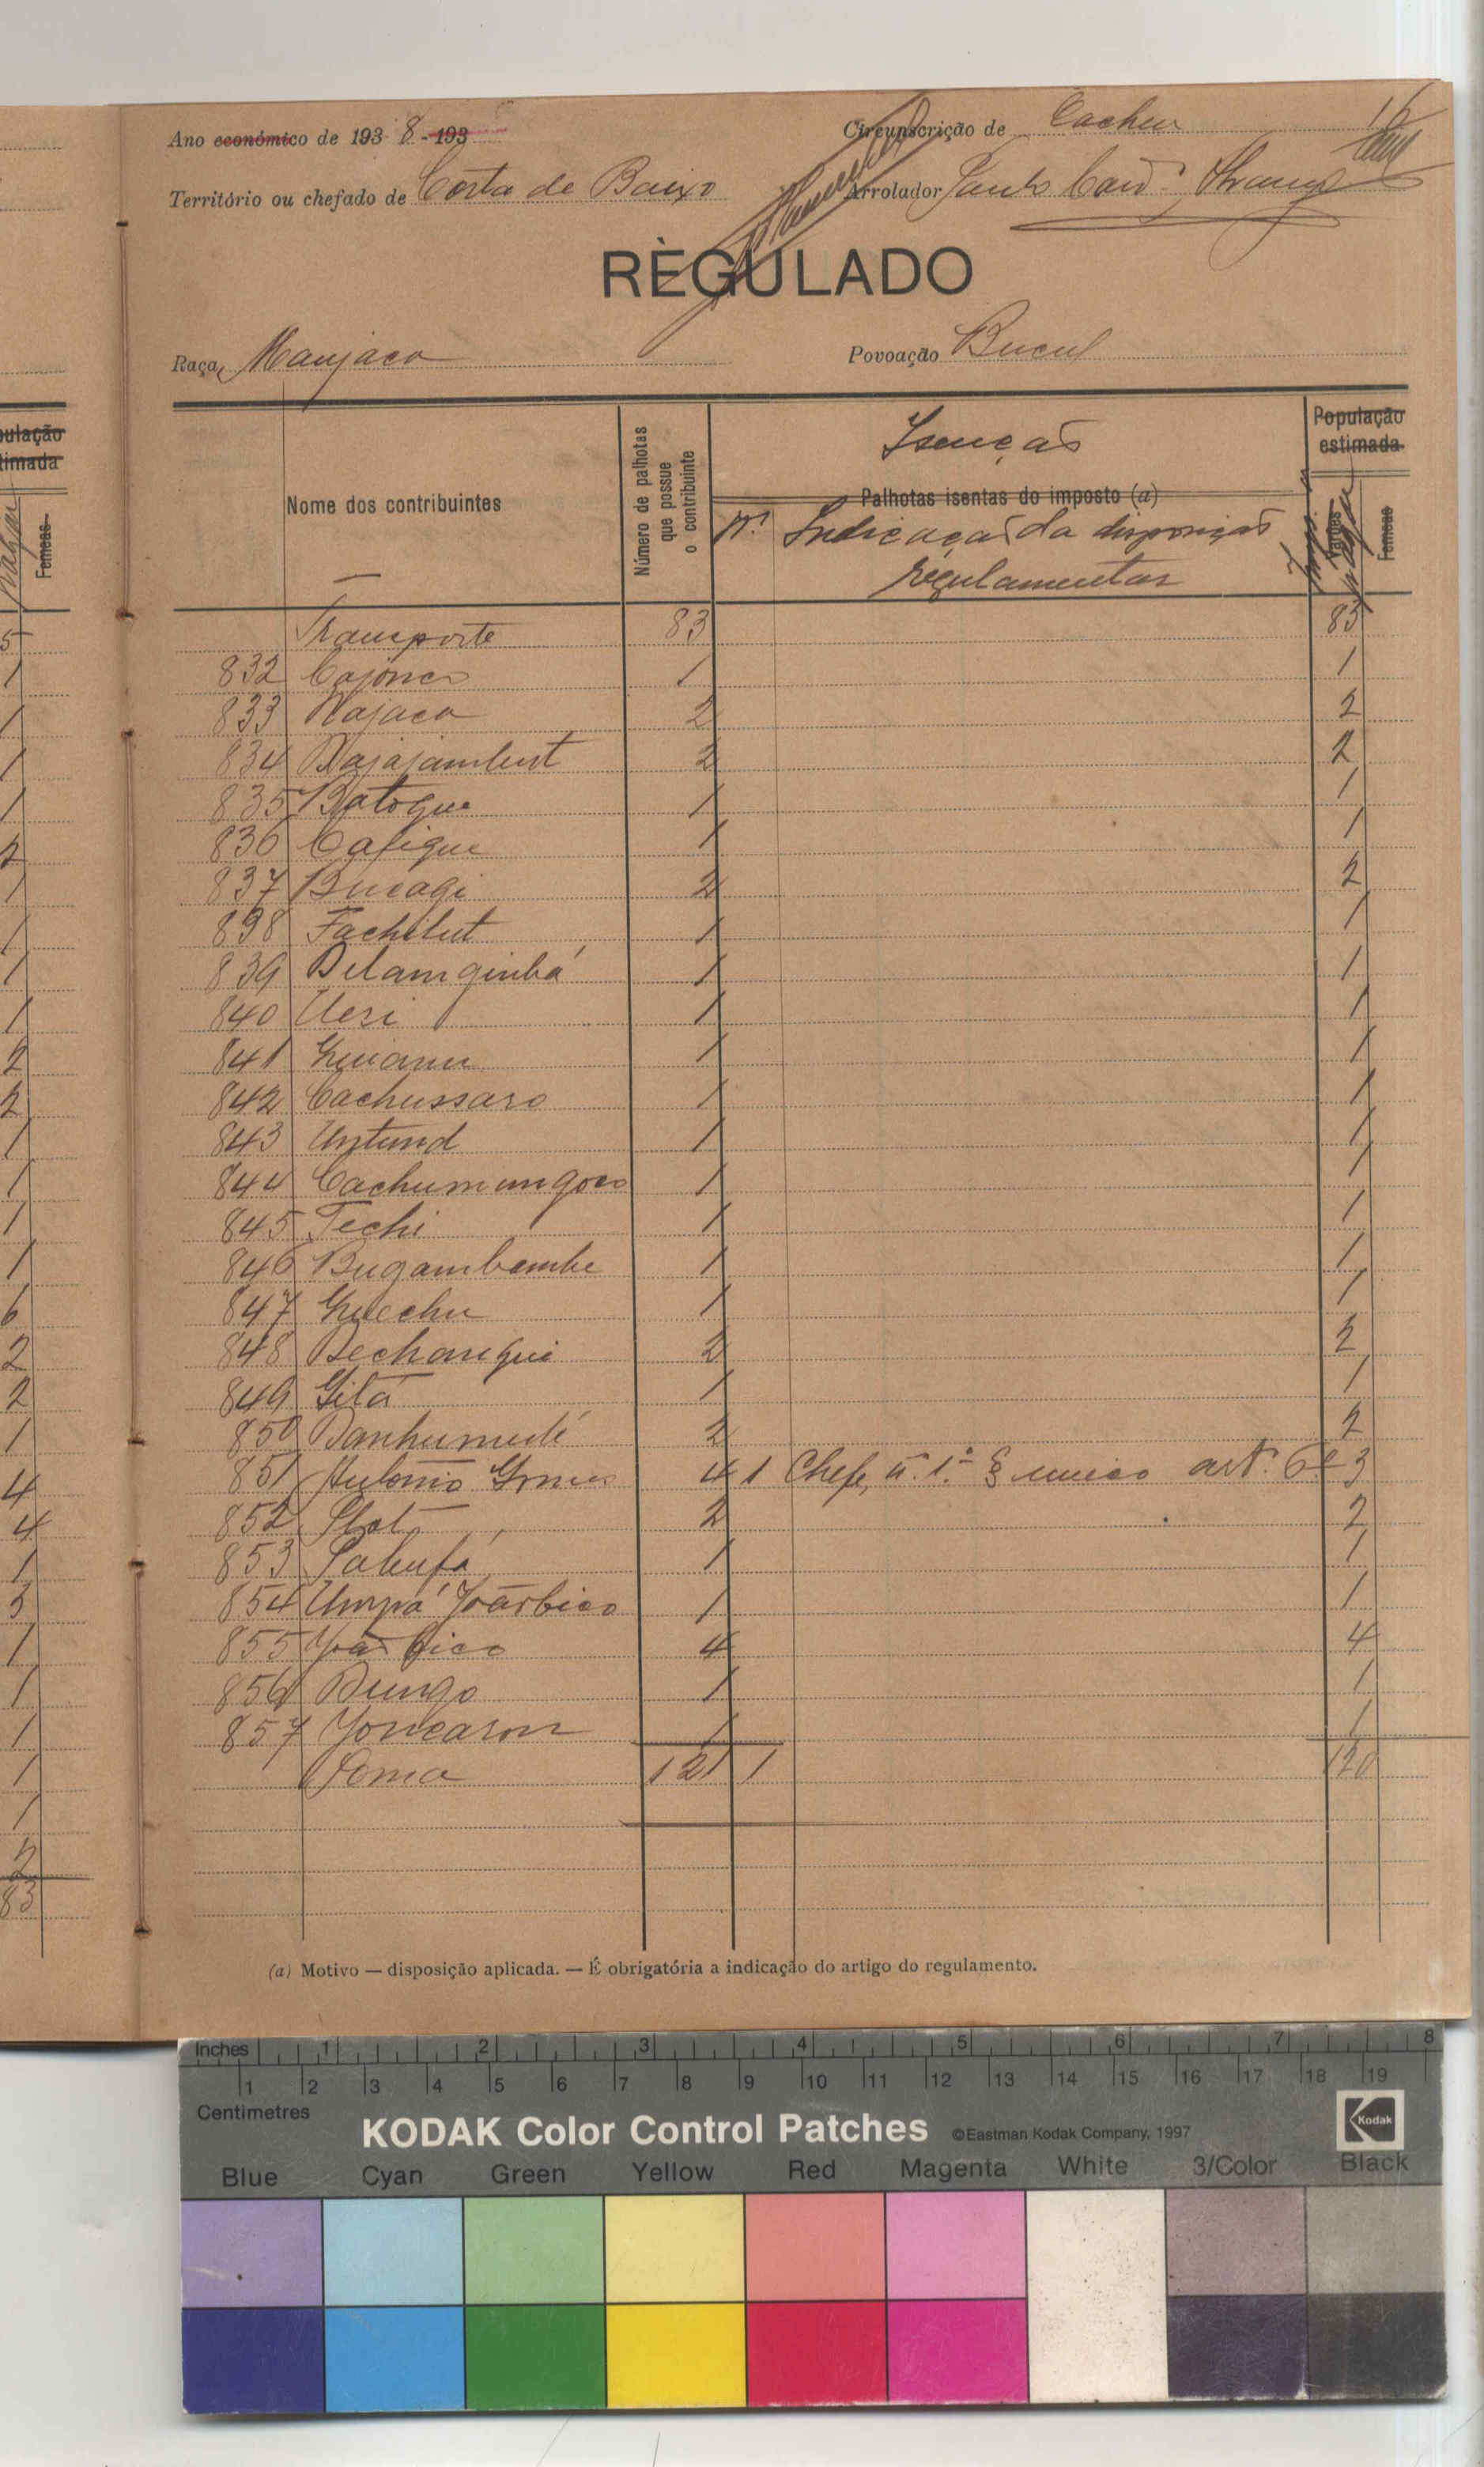 Ano económico de 193 8 - 193
Circunscrição de Cacheu
16
Território ou chefado de Costa de Baixo
Arrolador Paulo
RÈGULADO
Raça, Manjaco
Povoação Bucul
pulação
timada
Femeas
Nome dos contribuintes
Número de palhotas que possue o contribuinte
Isenção
Palhotas isentas do imposto (a)
N.º Indicação da disposição
regulamentar
População estimada
Varões
Femeas
Transporte 83 83
832 Cajonco 1 1
833 Najaca 2 2
834 Najajambut 2 2
835 Batoque 1 1
836 Cafique 1 1
837 Bucagi 2 2
838 Fachilut 1 1
839 Dilamginhá 1 1
840 Ueri 1 1
841 1 1
842 Cachussaro 1 1
843 Untund 1 1
844 Cachumungoco 1 1
845 Techi 1 1
846 Bugambambe 1 1
847 Guechu 1 1
848 Bechangue 2 2
849 Gitá 1 1
850 Danhumulé 2 2
851 António Gomes 4 1 Chefe, n.º 1.º § unico art. 6º 3
852 2 2
853 1 1
854 Umpá Joãobico 1 1
855 João bico 4 4
856 Dungo 1 1
857 Joncaron 1 1
Soma 121 1 120
5
1
1
1
1
2
1
1
1
1
2
2
1
1
1
1
6
2
2
1
4
4
1
3
1
1
1
1
1
2
83
(a) Motivo — disposição aplicada. — É obrigatória a indicação do artigo do regulamento.
Inches 1 2 3 4 5 6 7 8
1 2 3 4 5 6 7 8 9 10 11 12 13 14 15 16 17 18 19
Centimetres
KODAK Color Control Patches ©Eastman Kodak Company, 1997 Kodak
Blue Cyan Green Yellow Red Magenta White 3/Color Black